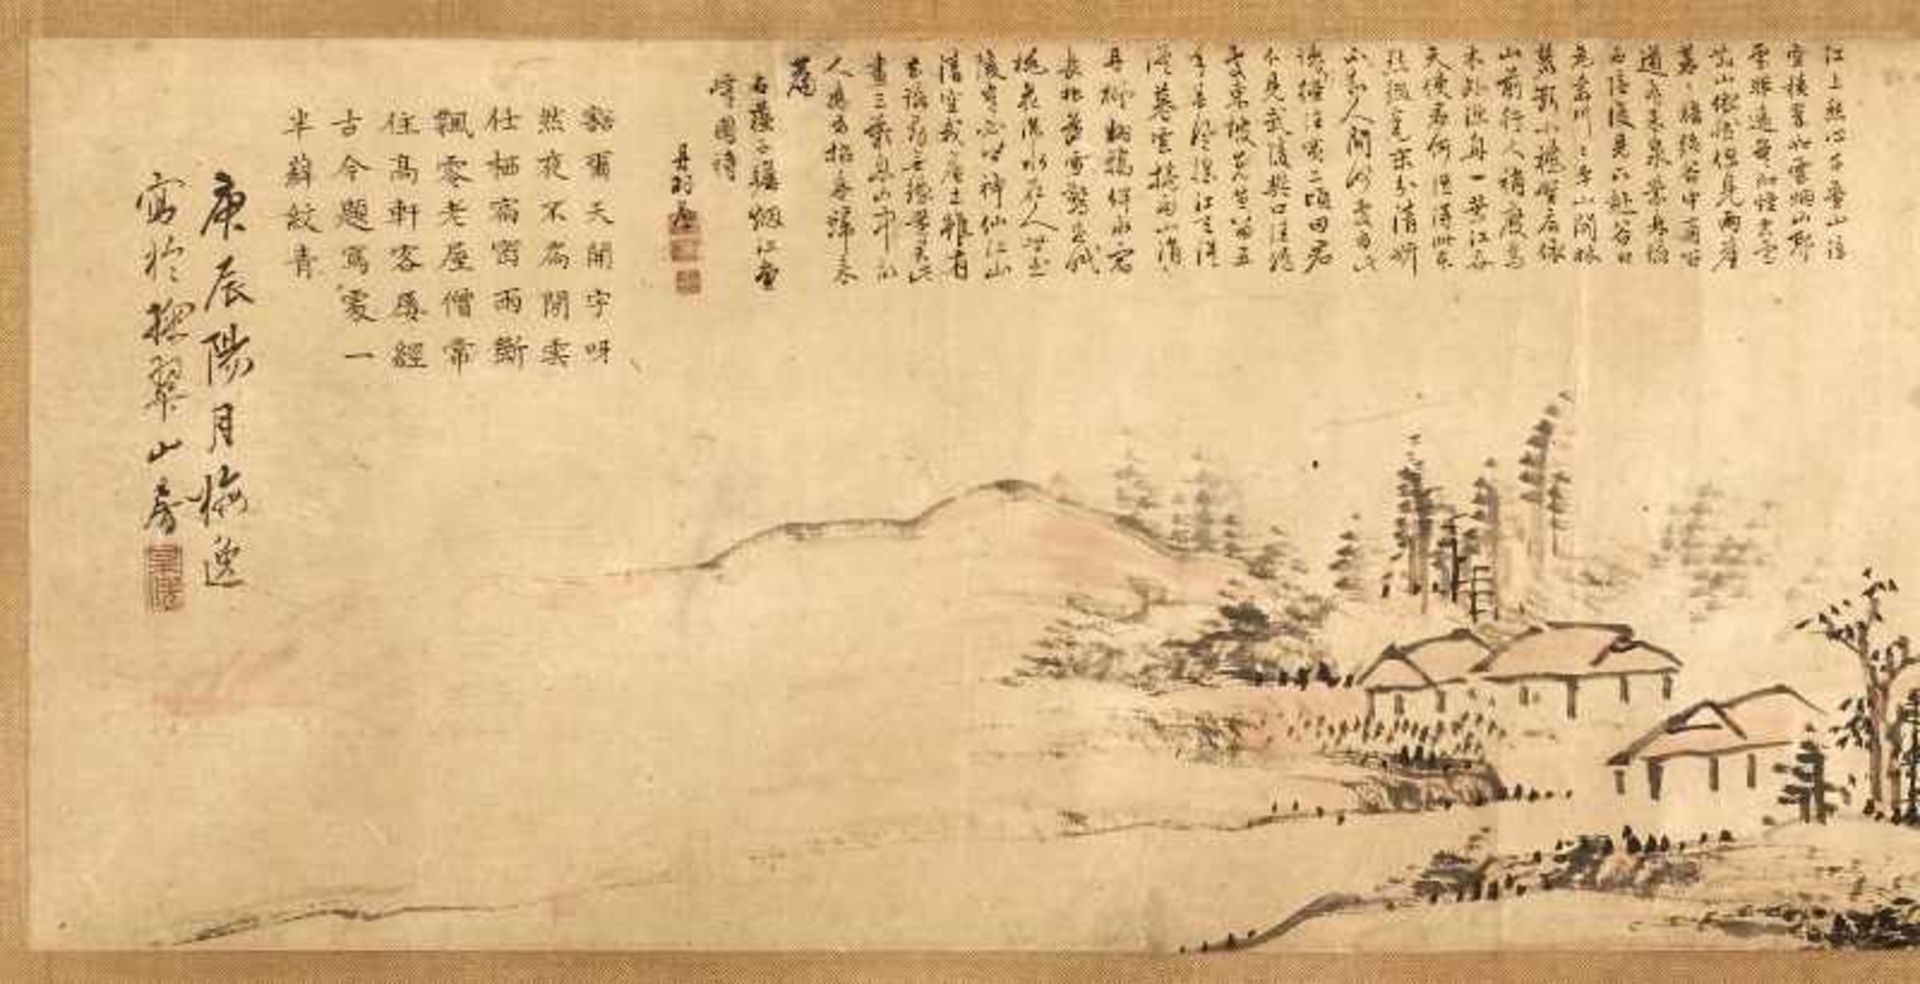 江上愁心千疊山浮
空積翠如雲烟山耶
雲耶遠莫知烟空雲
散山依然但見兩崖
蒼々暗絶谷中有百
道飛來泉縈林絡
石隱復見下赴谷口
爲奔川々平山開林
麓斷小橋野店依
山前行人稍度喬
木外漁舟一葉江吞
天使君何從得此本
點綴毫末分清妍
不知人間何處有此
境徑往買二頃田君
不見武陵樊口幽絶
處東坡先生留五
年春風搖江天漠
漠暮雲捲雨山涓々
丹楓翻鴉伴水宿
長松落雪驚醉眠
桃花流水在人世武
陵豈必皆神仙江山
清空我塵土雖有
去路尋無緣還君此
畫三歎息山中故
人應有招我歸來
篇
右蘇子瞻烟江疊
嶂圖詩
豁爾天開宇呀
然夜不扃閒雲
仕栖宿雷雨斷
飄零老屋僧常
住高軒客屢經
古今題寫處一
半蘚紋青
庚辰陽月梅逸
寫於翠山房